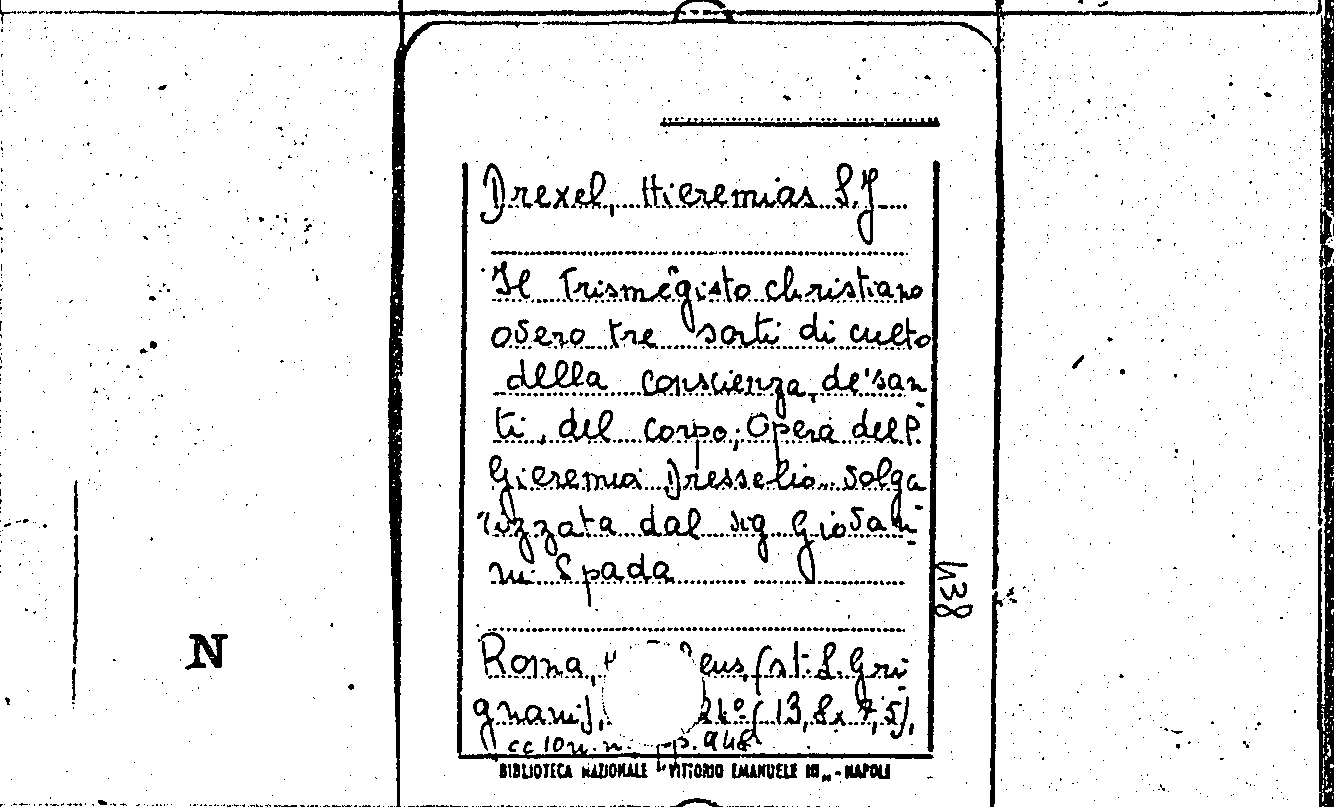 Drexel, Hieremias S.J.
Il Trismegisto christiano
overo tre sorti di culto
della conscienza, de' san-
ti, del corpo; Opera del P.
Gieremia Dresselio volga
rizzata dal sig Giovan-
ni Spada
438
N
Roma, Deus, (st: L. Gri-
gnani), 24º (13,8x7,5),
cc 10 n. n. pp. 948
BIBLIOTECA NAZIONALE "VITTORIO EMANUELE III" - NAPOLI